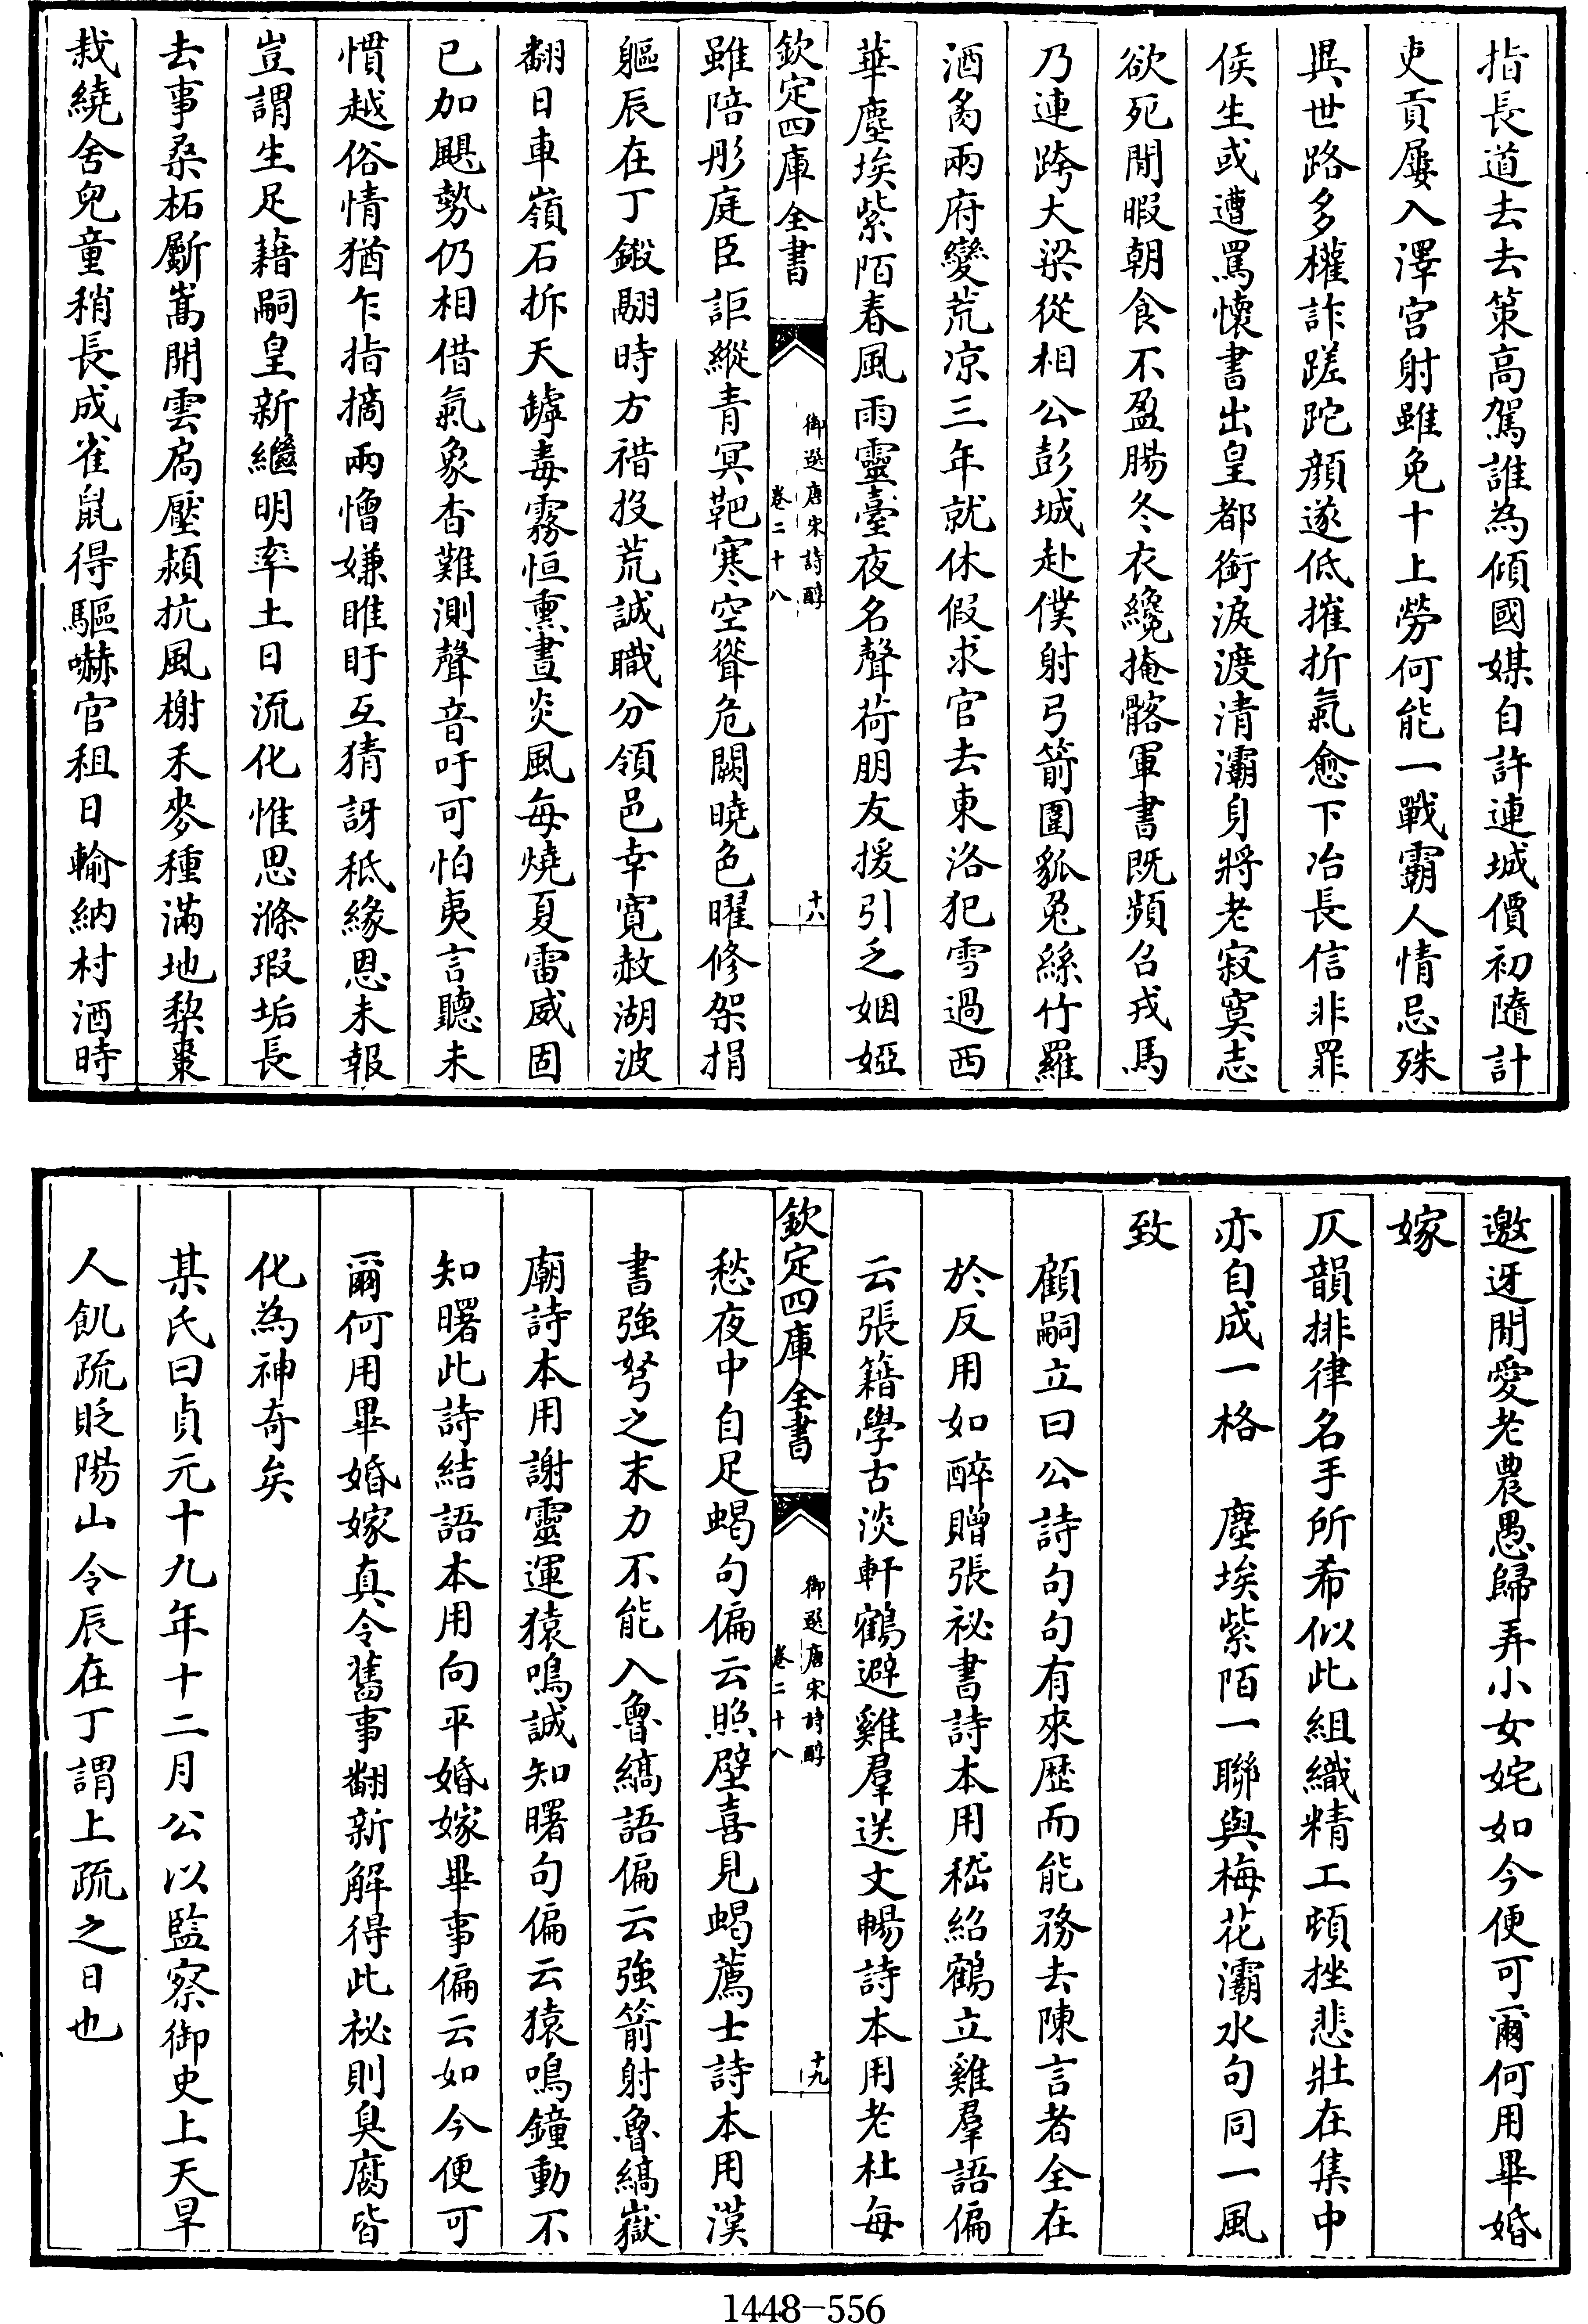 指長道去去策高駕誰為傾國媒自許連城價初隨計
吏貢屢入澤宮射雖免十上勞何能一戰霸人情忌殊
異世路多權詐蹉跎顔遂低摧折氣愈下冶長信非罪
侯生或遭罵懷書出皇都銜淚渡清灞身將老寂寞志
欲死閒暇朝食不盈腸冬衣纔掩骼軍書既頻召戎馬
乃連跨大梁從相公彭城赴僕射弓箭圍狐兎絲竹羅
酒炙兩府變荒凉三年就休假求官去東洛犯雪過西
華塵埃紫陌春風雨靈臺夜名聲荷朋友援引乏姻婭
欽定四庫全書
御選唐宋詩醇
卷二十八
十八
雖陪彤庭臣詎縱青冥靶寒空聳危闕曉色曜修架捐
軀辰在丁鎩翮時方䄍投荒誠職分領邑幸寛赦湖波
翻日車嶺石拆天罅毒霧恒熏晝炎風每燒夏雷威固
已加颶勢仍相借氣象杳難測聲音吁可怕夷言聽未
慣越俗情猶乍指摘兩憎嫌睢盱互猜訝秪緣恩未報
豈謂生足藉嗣皇新繼明率土日流化惟思滌瑕垢長
去事桑柘斸嵩開雲扃壓潁抗風榭禾麥種滿地棃棗
栽繞舍兒童稍長成雀鼠得驅嚇官租日輸納村酒時
邀迓閒愛老農愚歸弄小女姹如今便可爾何用畢婚
嫁
仄韻排律名手所希似此組織精工頓挫悲壯在集中
亦自成一格　塵埃紫陌一聯與梅花灞水句同一風
致
顧嗣立曰公詩句句有來歷而能務去陳言者全在
於反用如醉贈張祕書詩本用嵇紹鶴立雞羣語偏
云張籍學古淡軒鶴避雞羣送文暢詩本用老杜每
欽定四庫全書
御選唐宋詩醇
卷二十八
十九
愁夜中自足蝎句偏云照壁喜見蝎薦士詩本用漢
書強弩之末力不能入魯縞語偏云強箭射魯縞嶽
廟詩本用謝靈運猿鳴誠知曙句偏云猿鳴鐘動不
知曙此詩結語本用向平婚嫁畢事偏云如今便可
爾何用畢婚嫁真令舊事翻新解得此祕則臭腐皆
化為神奇矣
某氏曰貞元十九年十二月公以監察御史上天旱
人飢疏貶陽山令辰在丁謂上疏之日也
1448-556